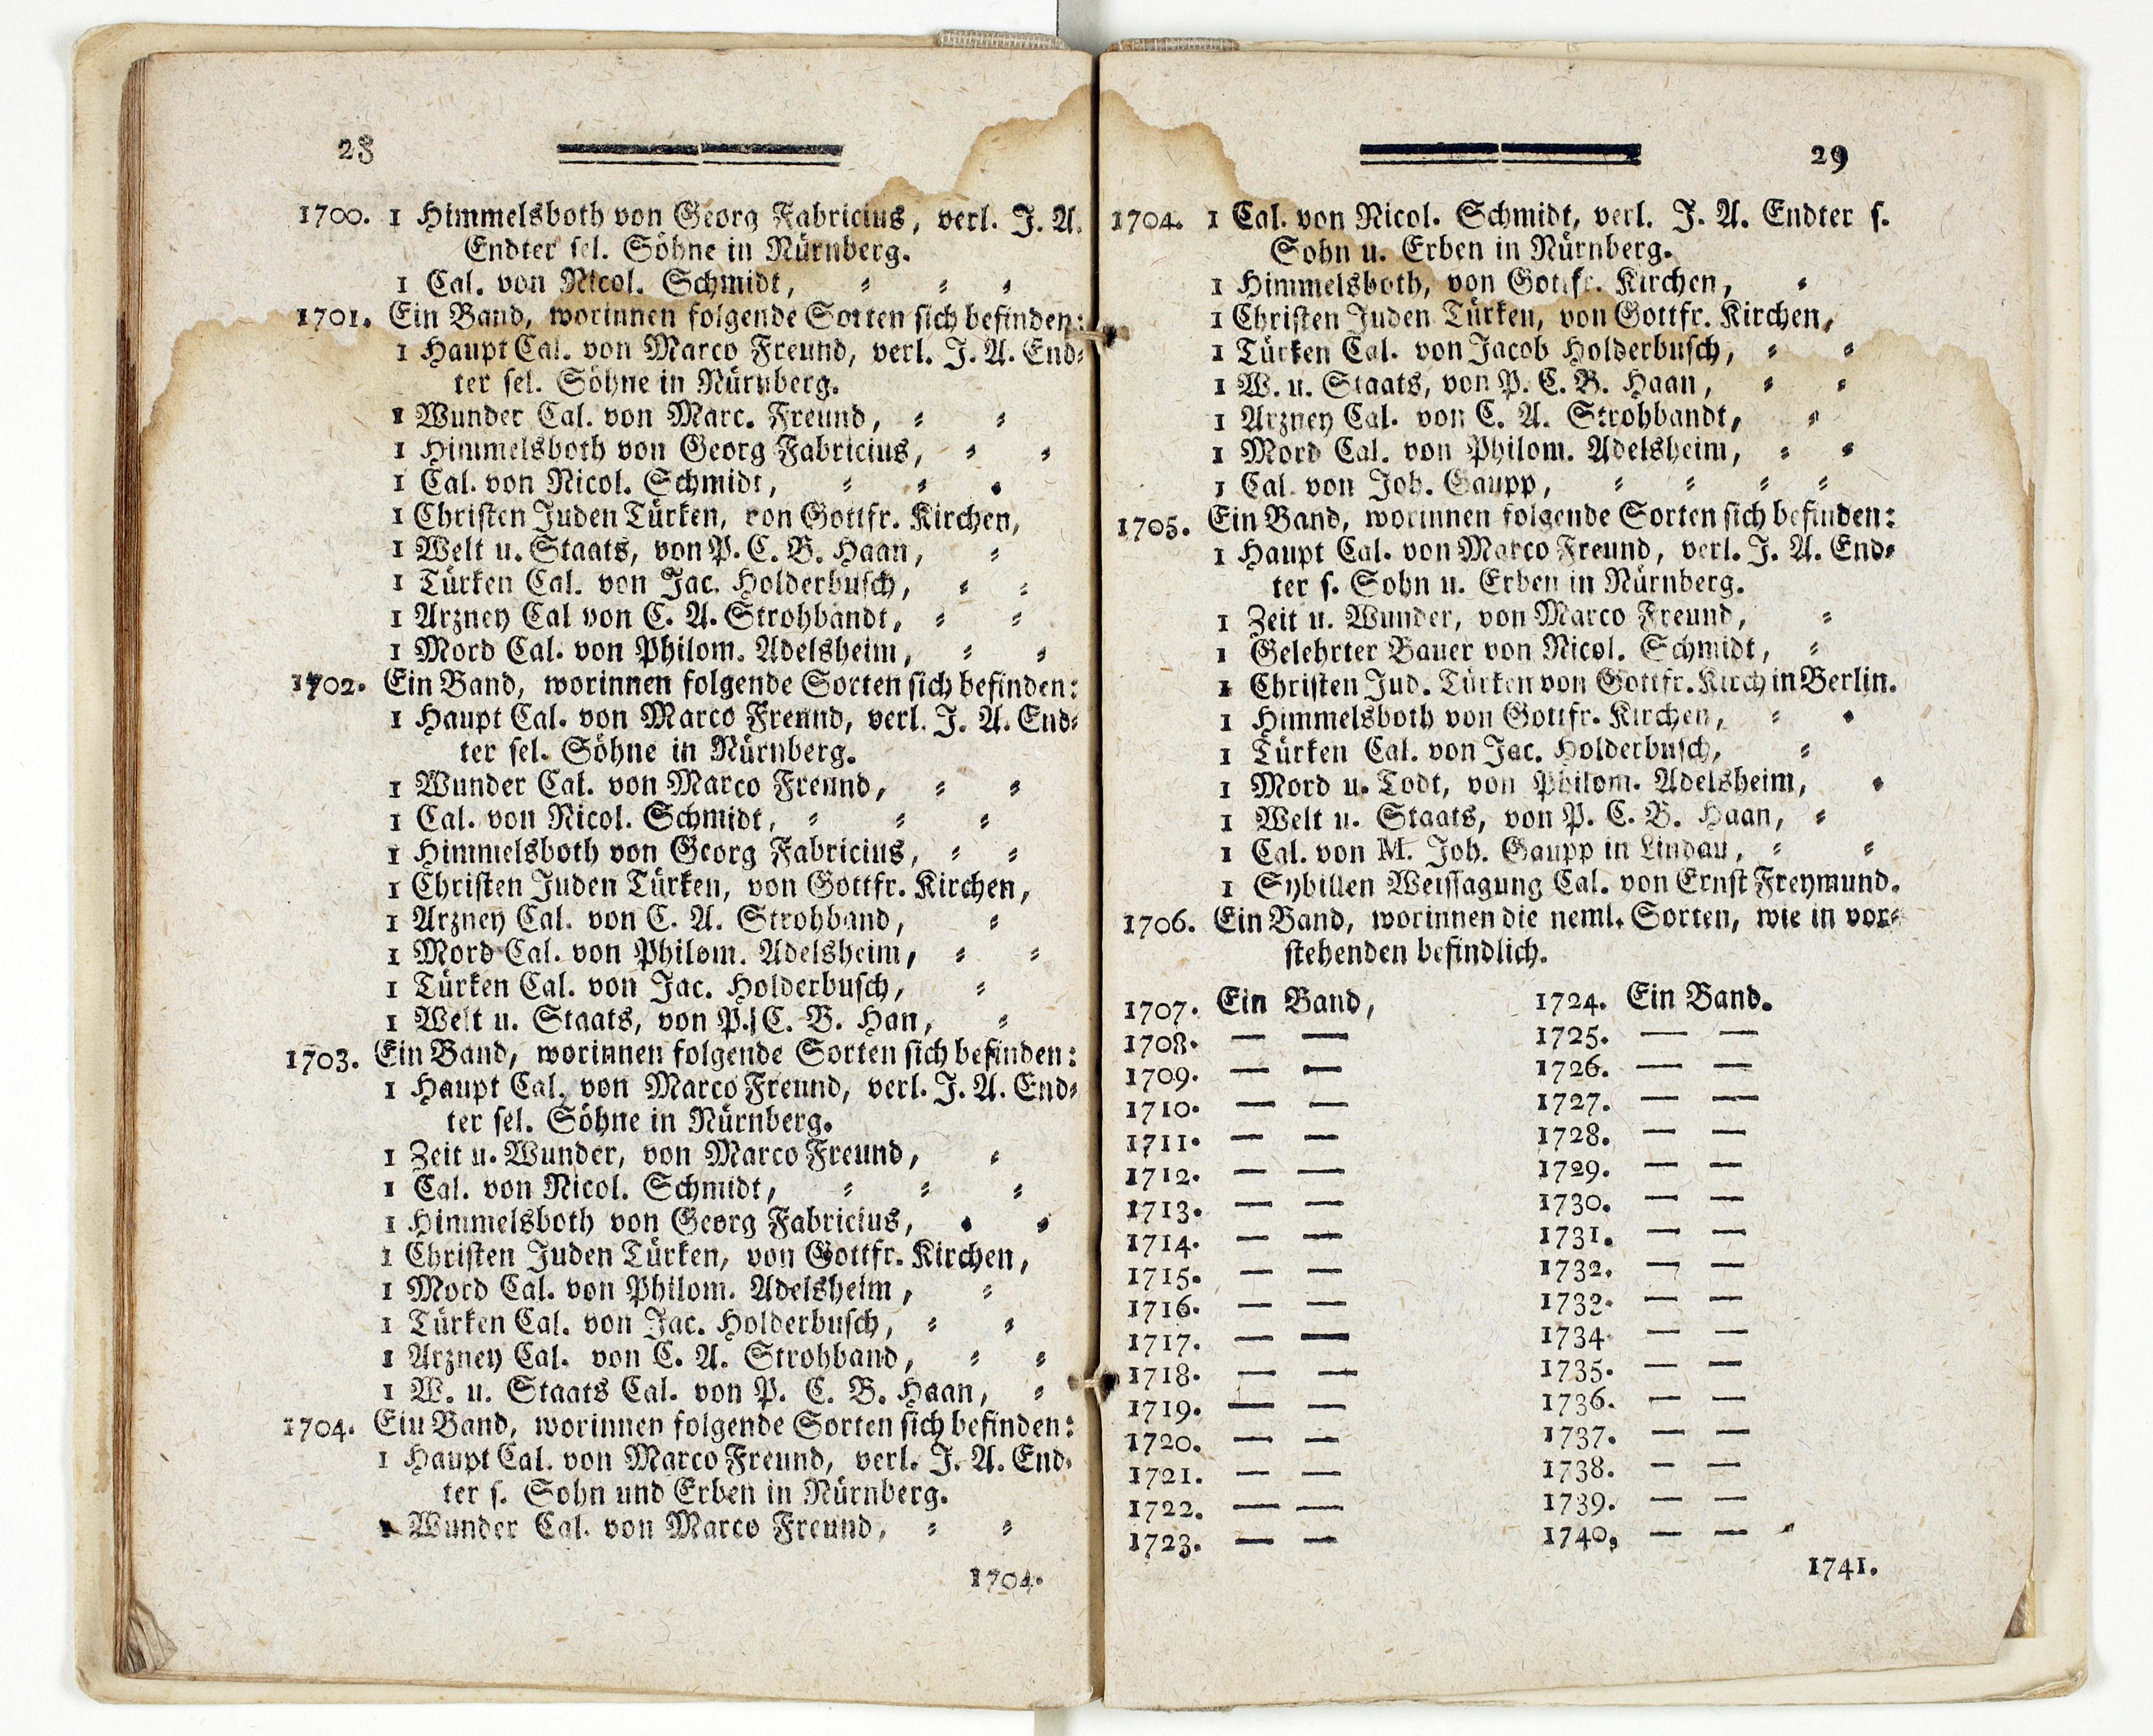 28
1700. 1 Himmelsboth von Georg Fabricius, verl. J. A.
Endter sel. Söhne in Nürnberg.
1 Cal. von Nicol. Schmidt, = = =
1701. Ein Band, worinnen folgende Sorten sich befinden:
1 Haupt Cal. von Marco Freund, verl. J. A. End=
ter sel. Söhne in Nürnberg.
1 Wunder Cal. von Marc. Freund, = =
1 Himmelsboth von Georg Fabricius, = =
1 Cal. von Nicol. Schmidt, = = =
1 Christen Juden Türken, von Gottfr. Kirchen,
1 Welt u. Staats, von P. C. B. Haan, =
1 Türken Cal. von Jac. Holderbusch, = =
1 Arzney Cal von C. A. Strohbandt, = =
1 Mord Cal. von Philom. Adelsheim, = =
1702. Ein Band, worinnen folgende Sorten sich befinden:
1 Haupt Cal. von Marco Freund, verl. J. A. End=
ter sel. Söhne in Nürnberg.
1 Wunder Cal. von Marco Freund, = =
1 Cal. von Nicol. Schmidt, = = =
1 Himmelsboth von Georg Fabricius, = =
1 Christen Juden Türken, von Gottfr. Kirchen,
1 Arzney Cal. von C. A. Strohband, =
1 Mord Cal. von Philom. Adelsheim, = =
1 Türken Cal. von Jac. Holderbusch, =
1 Welt u. Staats, von P. C. B. Han, =
1703. Ein Band, worinnen folgende Sorten sich befinden:
1 Haupt Cal. von Marco Freund, verl. J. A. End=
ter sel. Söhne in Nürnberg.
1 Zeit u. Wunder, von Marco Freund, =
1 Cal. von Nicol. Schmidt, = = =
1 Himmelsboth von Georg Fabricius, = =
1 Christen Juden Türken, von Gottfr. Kirchen,
1 Mord Cal. von Philom. Adelsheim, =
1 Türken Cal. von Jac. Holderbusch, = =
1 Arzney Cal. von C. A. Strohband, = =
1 W. u. Staats Cal. von P. C. B. Haan, =
1704. Ein Band, worinnen folgende Sorten sich befinden:
1 Haupt Cal. von Marco Freund, verl. J. A. End=
ter s. Sohn und Erben in Nürnberg.
1 Wunder Cal. von Marco Freund, = =
1704.
29
1704. 1 Cal. von Nicol. Schmidt, verl. J. A. Endter s.
Sohn u. Erben in Nürnberg.
1 Himmelsboth, von Gottfr. Kirchen, =
1 Christen Juden Türken, von Gottfr. Kirchen,
1 Türken Cal. von Jacob Holderbusch, = =
1 W. u. Staats, von P. C. B. Haan, = =
1 Arzney Cal. von C. A. Strohbandt, =
1 Mord Cal. von Philom. Adelsheim, = =
1 Cal. von Joh. Gaupp, = = = =
1705. Ein Band, worinnen folgende Sorten sich befinden:
1 Haupt Cal. von Marco Freund, verl. J. A. End=
ter s. Sohn u. Erben in Nürnberg.
1 Zeit u. Wunder, von Marco Freund, =
1 Gelehrter Bauer von Nicol. Schmidt, =
1 Christen Jud. Türken von Gottfr. Kirch in Berlin.
1 Himmelsboth von Gottfr. Kirchen, = =
1 Türken Cal. von Jac. Holderbusch, =
1 Mord u. Todt, von Philom. Adelsheim, =
1 Welt u. Staats, von P. C. B. Haan, =
1 Cal. von M. Joh. Gaupp in Lindau, = =
1 Sybillen Weissagung Cal. von Ernst Freymund.
1706. Ein Band, worinnen die neml. Sorten, wie in vor=
stehenden befindlich.
1707. Ein Band,
1708. — —
1709. — —
1710. — —
1711. — —
1712. — —
1713. — —
1714. — —
1715. — —
1716. — —
1717. — —
1718. — —
1719. — —
1720. — —
1721. — —
1722. — —
1723. — —
1724. Ein Band.
1725. — —
1726. — —
1727. — —
1728. — —
1729. — —
1730. — —
1731. — —
1732. — —
1732. — —
1734 — —
1735. — —
1736. — —
1737. — —
1738. — —
1739. — —
1740, — —
1741.